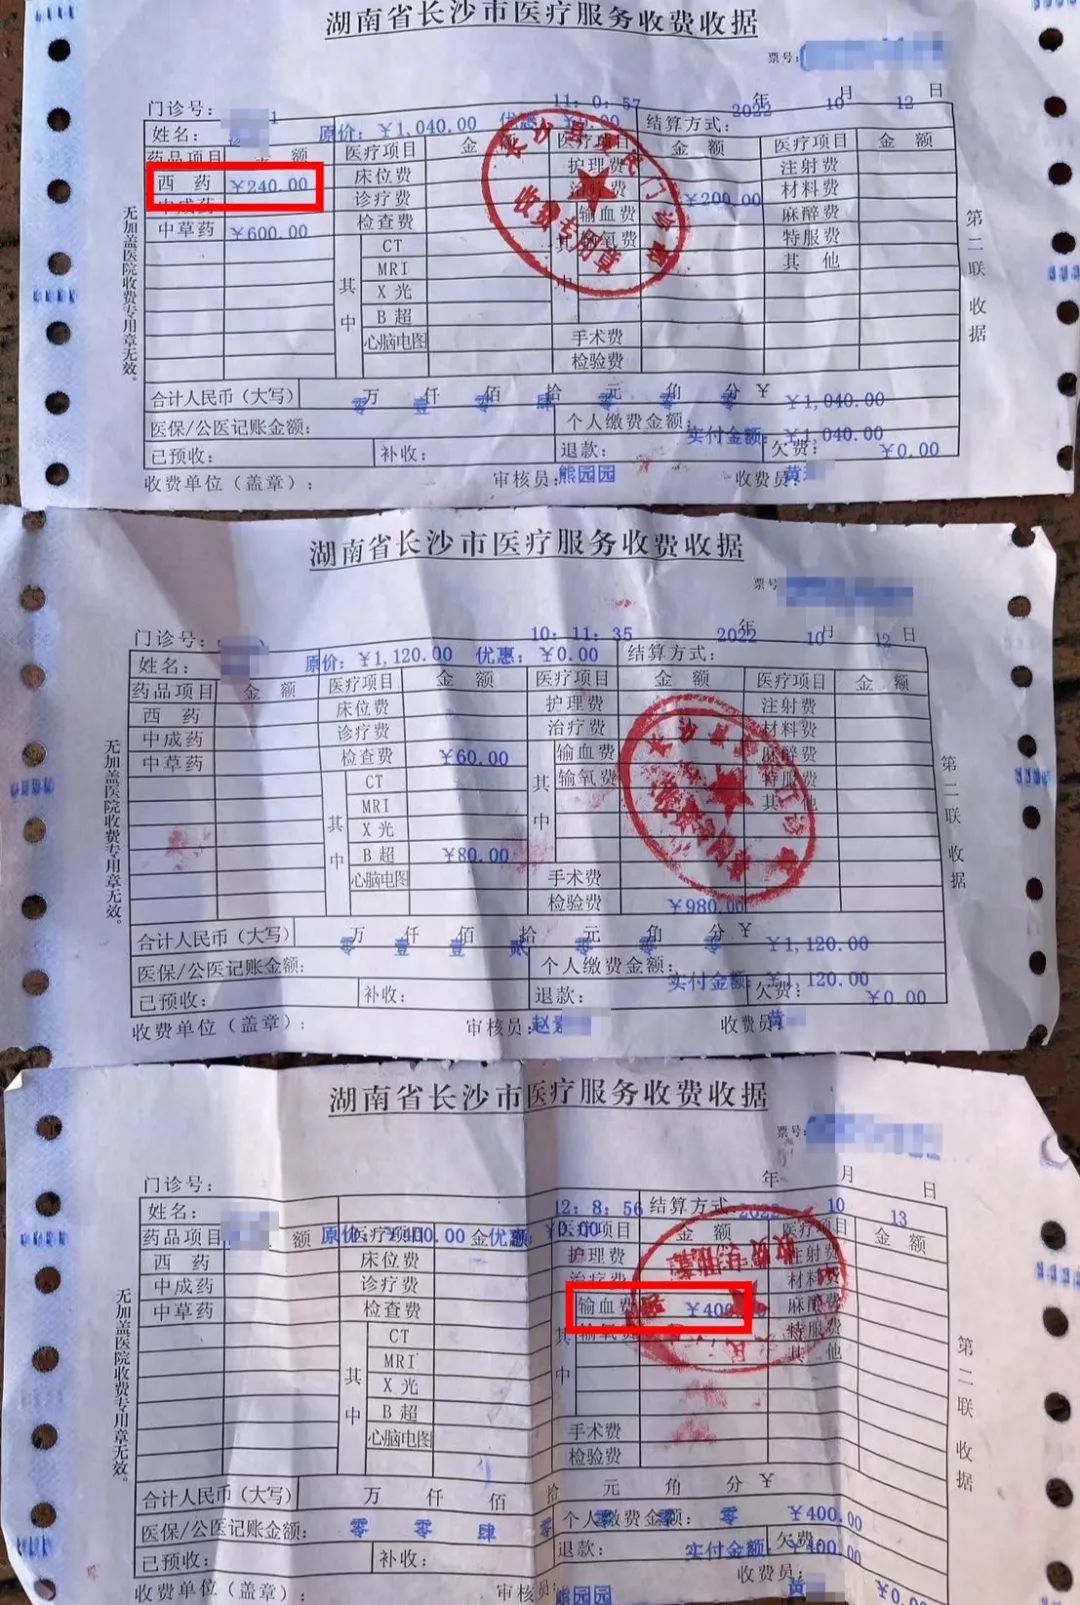 湖南省长沙市医疗服务收费收据
票号:
门诊号: 1 11:0:57 2022 年 10 月 12 日
姓名: 原价:￥1,040.00 优惠:￥0.00 结算方式:
药品项目 金 额 医疗项目 金 额 医疗项目 金 额 医疗项目 金 额
西 药 ￥240.00 床位费 护理费 注射费
中成药 诊疗费 治疗费 ￥200.00 材料费
中草药 ￥600.00 检查费 输血费 麻醉费
其中 CT 其中 输氧费 特服费
MRI 其 他
X 光
B 超
心脑电图 手术费
检验费
合计人民币(大写) 零 万 壹 仟 零 佰 肆 拾 零 元 零 角 零 分 ￥ ￥1,040.00
医保/公医记账金额: 个人缴费金额: 实付金额:￥1,040.00
已预收: 补收: 退款: 欠费: ￥0.00
收费单位(盖章): 审核员:熊园园 收费员:黄
无加盖医院收费专用章无效。
第二联 收据
收费专用章
湖南省长沙市医疗服务收费收据
票号
门诊号: 10:11:35 2022 年 10 月 12 日
姓名: 原价:￥1,120.00 优惠:￥0.00 结算方式:
药品项目 金 额 医疗项目 金 额 医疗项目 金 额 医疗项目 金 额
西 药 床位费 护理费 注射费
中成药 诊疗费 治疗费 材料费
中草药 检查费 ￥60.00 输血费 麻醉费
其中 CT 其中 输氧费 特服费
MRI 其 他
X 光
B 超 ￥80.00
心脑电图 手术费
检验费 ￥980.00
合计人民币(大写) 零 万 壹 仟 壹 佰 贰 拾 零 元 零 角 零 分 ￥ ￥1,120.00
医保/公医记账金额: 个人缴费金额: 实付金额:￥1,120.00
已预收: 补收: 退款: 欠费: ￥0.00
收费单位(盖章): 审核员:赵 收费员:黄
无加盖医院收费专用章无效。
第二联 收据
湖南省长沙市医疗服务收费收据
票号:
门诊号: 年 月 日
姓名: 12:8:56 结算方式: 2022 10 13
药品项目 额 原价:￥400.00 医疗项目 金 额 优惠:￥0.00 医疗项目 金 额 医疗项目 金 额
西 药 床位费 护理费 注射费
中成药 诊疗费 治疗费 材料费
中草药 检查费 输血费 ￥400 麻醉费
其中 CT 其中 输氧费 特服费
MRI 其 他
X 光
B 超
心脑电图 手术费
检验费
合计人民币(大写) 万 仟 佰 拾 元 角 分 ￥
医保/公医记账金额: 零 零 肆 零 个人缴费金额: 零 零 零 ￥400.00
已预收: 补收: 退款: 实付金额: 欠费: ￥400.00
收费单位(盖章): 审核员:熊园园 收费员: 黄 ￥0.00
无加盖医院收费专用章无效。
第二联 收据